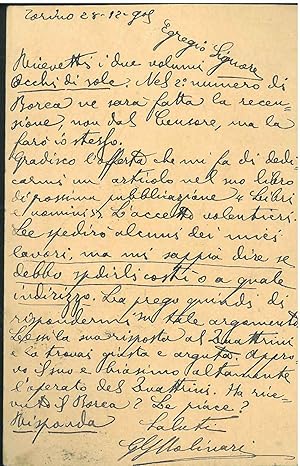 Torino 28-12-905
Egregio Signore
Ricevetti i due volumi
Occhi di sole. Nel 2º numero di
Borea ne sarà fatta la recen-
sione, non dal Censore, ma la
farò io stesso.
Gradisco l'offerta che mi fa di dedi-
carmi un articolo nel suo libro
di prossima pubblicazione "Libri
e uomini". L'accetto volentieri.
Le spedirò alcuni dei miei
lavori, ma mi sappia dire se
debbo spedirli costì o a quale
indirizzo. La prego quindi di
rispondermi in tale argomento
Lessi la sua risposta al Quattrini
e la trovai giusta e arguta. Appro-
vo Suo e biasimo altamente
l'operato del Quattrini. Ha rice-
vuto il Borea? Le piace?
Risponda
Saluti
Molinari